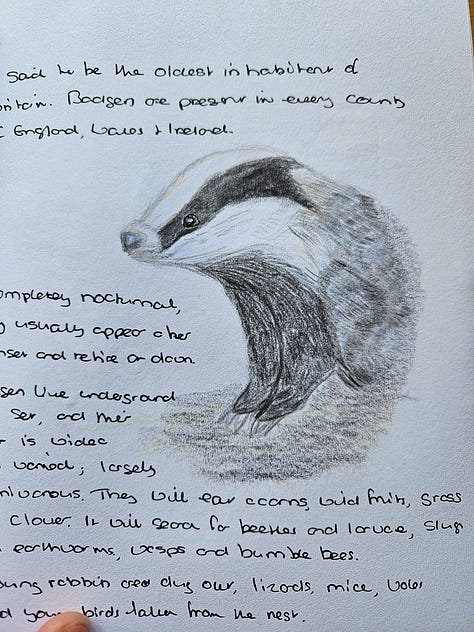 said to be the oldest inhabitent of
ritain. Badgers are present in every county
England, Wales + Ireland.
ompletely nocturnal,
usually appear after
nset and retire at dawn
live underground
set, and their
is wide
varied; largely
nivorous. They will eat acorns, wild fruits, grass
clover. It will search for beetles and larvae, slugs
earthworms, wasps and bumble bees.
oung rabbits are dug out, lizards, mice, voles
d young birds taken from the nest.